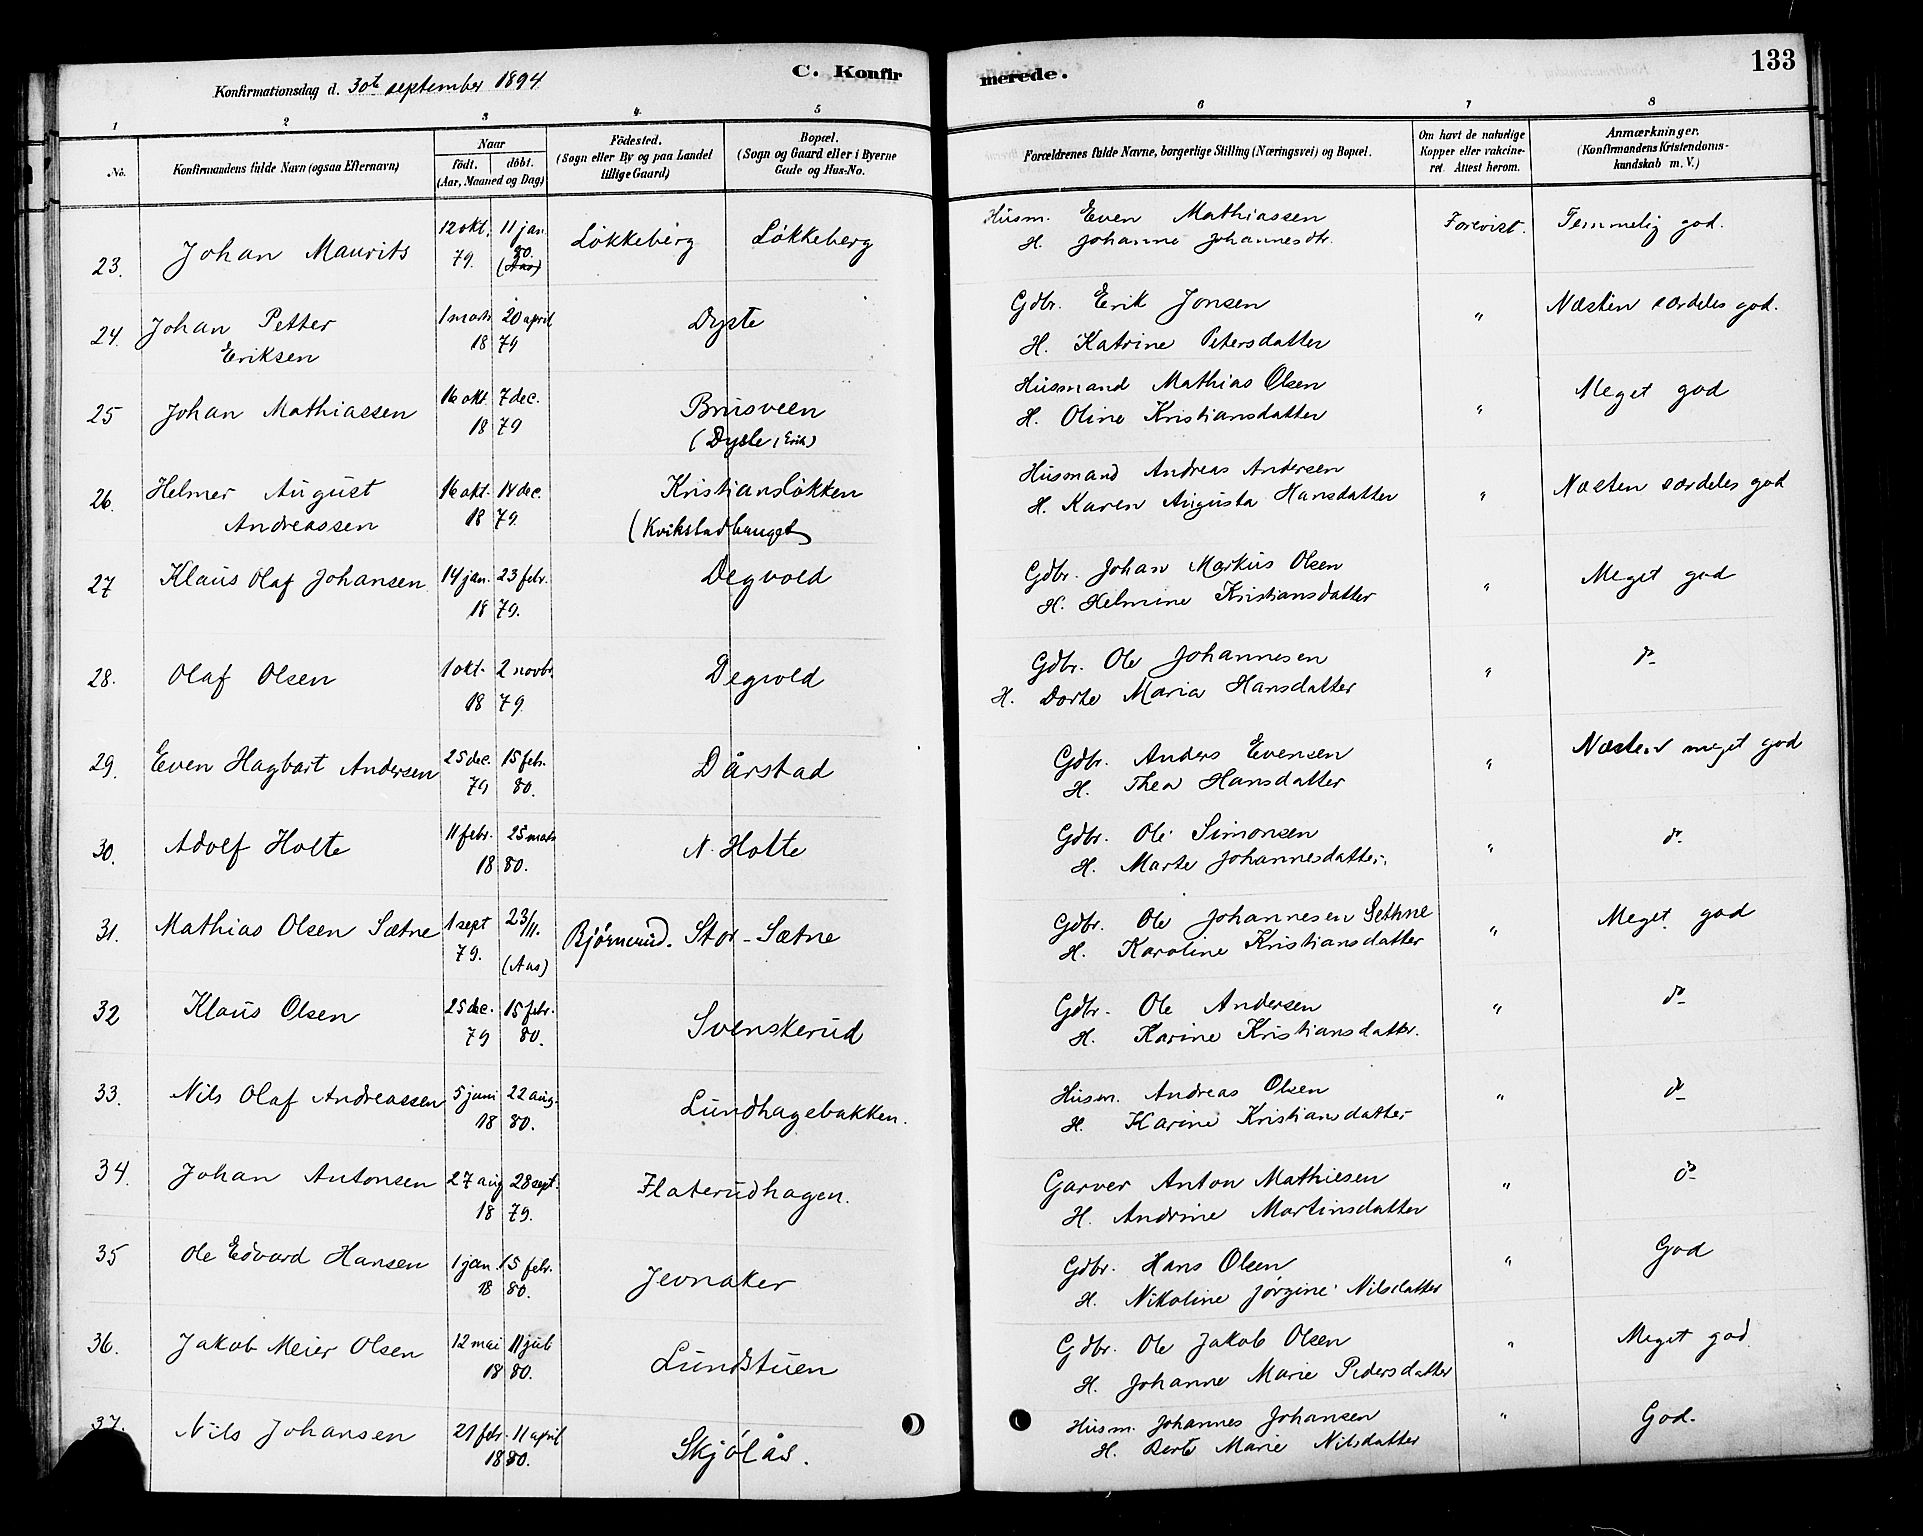 133
C. Konfirmerede.
Konfirmationsdag d. 30te september 1894
1 2 3 4 5 6 7 8
No.
Konfirmandens fulde Navn (ogsaa Efternavn)
Naar
födt. döbt.
(Aar, Maaned og Dag)
Födested.
(Sogn eller By og paa Landet
tillige Gaard)
Bopæl.
(Sogn og Gaard eller i Byerne
Gade og Hus-No.
Forældrenes fulde Navne, borgerlige Stilling (Næringsvei) og Bopæl.
Om havt de naturlige
Kopper eller vakcine-
ret. Attest herom.
Anmærkninger.
(Konfirmandens Kristendoms-
kundskab m. V.)
23. Johan Maurits 12 okt. 79. 11 jan. 80. (Aas) Løkkeberg Løkkeberg Husm. Even Mathiassen Forevist. Temmelig god.
H. Johanne Johannesdtr.
24. Johan Petter 1 marts 20 april Dyste Gdbr. Erik Jonsen " Næsten særdeles god.
Eriksen 18 79 H. Katrine Petersdatter
25 Johan Mathiassen 16 okt. 7 dec. Brusveen Husmand Mathias Olsen " Meget god
18 79 (Dyste, Erik) H. Oline Kristiansdatter
26. Helmer August 16 okt. 14 dec. Kristiansløkken Husmand Andreas Andersen " Næsten særdeles god
Andreassen 18 79. (Kvikstadhauget) H. Karen Augusta Hansdatter
27 Klaus Olaf Johansen 14 jan. 23 febr. Degvold Gdbr. Johan Markus Olsen " Meget god
18 79. H. Helmine Kristiansdatter
28. Olaf Olsen 1 okt. 2 novbr. Degvold Gdbr. Ole Johannesen " do
18 79. H. Dorte Maria Hansdatter
29. Even Hagbart Andersen 25 dec. 15 febr. Dårstad Gdbr. Anders Evensen " Næsten meget god
79 80. H. Thea Hansdatter
30. Adolf Holte 11 febr. 25 mars N. Holte Gdbr. Ole Simonsen " do
18 80. H. Marte Johannesdatter.
31. Mathias Olsen Sætne 1 sept 23/11. Bjørnerud. Stor-Sætne Gdbr. Ole Johannesen Sethne " Meget god
79. (Aas) H. Karoline Kristiansdatter
32 Klaus Olsen 25 dec. 15 febr. Svenskerud Gdbr. Ole Andersen " do
79 80. H. Karine Kristiansdatter.
33. Nils Olaf Andreassen 5 juni 22 aug. Lundhagebakken. Husm. Andreas Olsen " do
18 80. H. Karine Kristiansdatter
34. Johan Antonsen 27 aug 28 sept. Flaterudhagen. Garver Anton Mathiesen " do
18 79. H. Andrine Martinsdatter
35 Ole Edvard Hansen 1 jan. 15 febr. Jevnaker Gdbr. Hans Olsen " God
18 80. H. Nikoline Jørgine Nilsdatter
36. Jakob Meier Olsen 12 mai 11 juli Lundstuen Gdbr. Ole Jakob Olsen " Meget god.
18 80. H. Johanne Marie Pedersdatter
37. Nils Johansen 21 febr. 11 april Skjølås. Husm. Johannes Johansen " God.
18 80. H. Berte Marie Nilsdatter